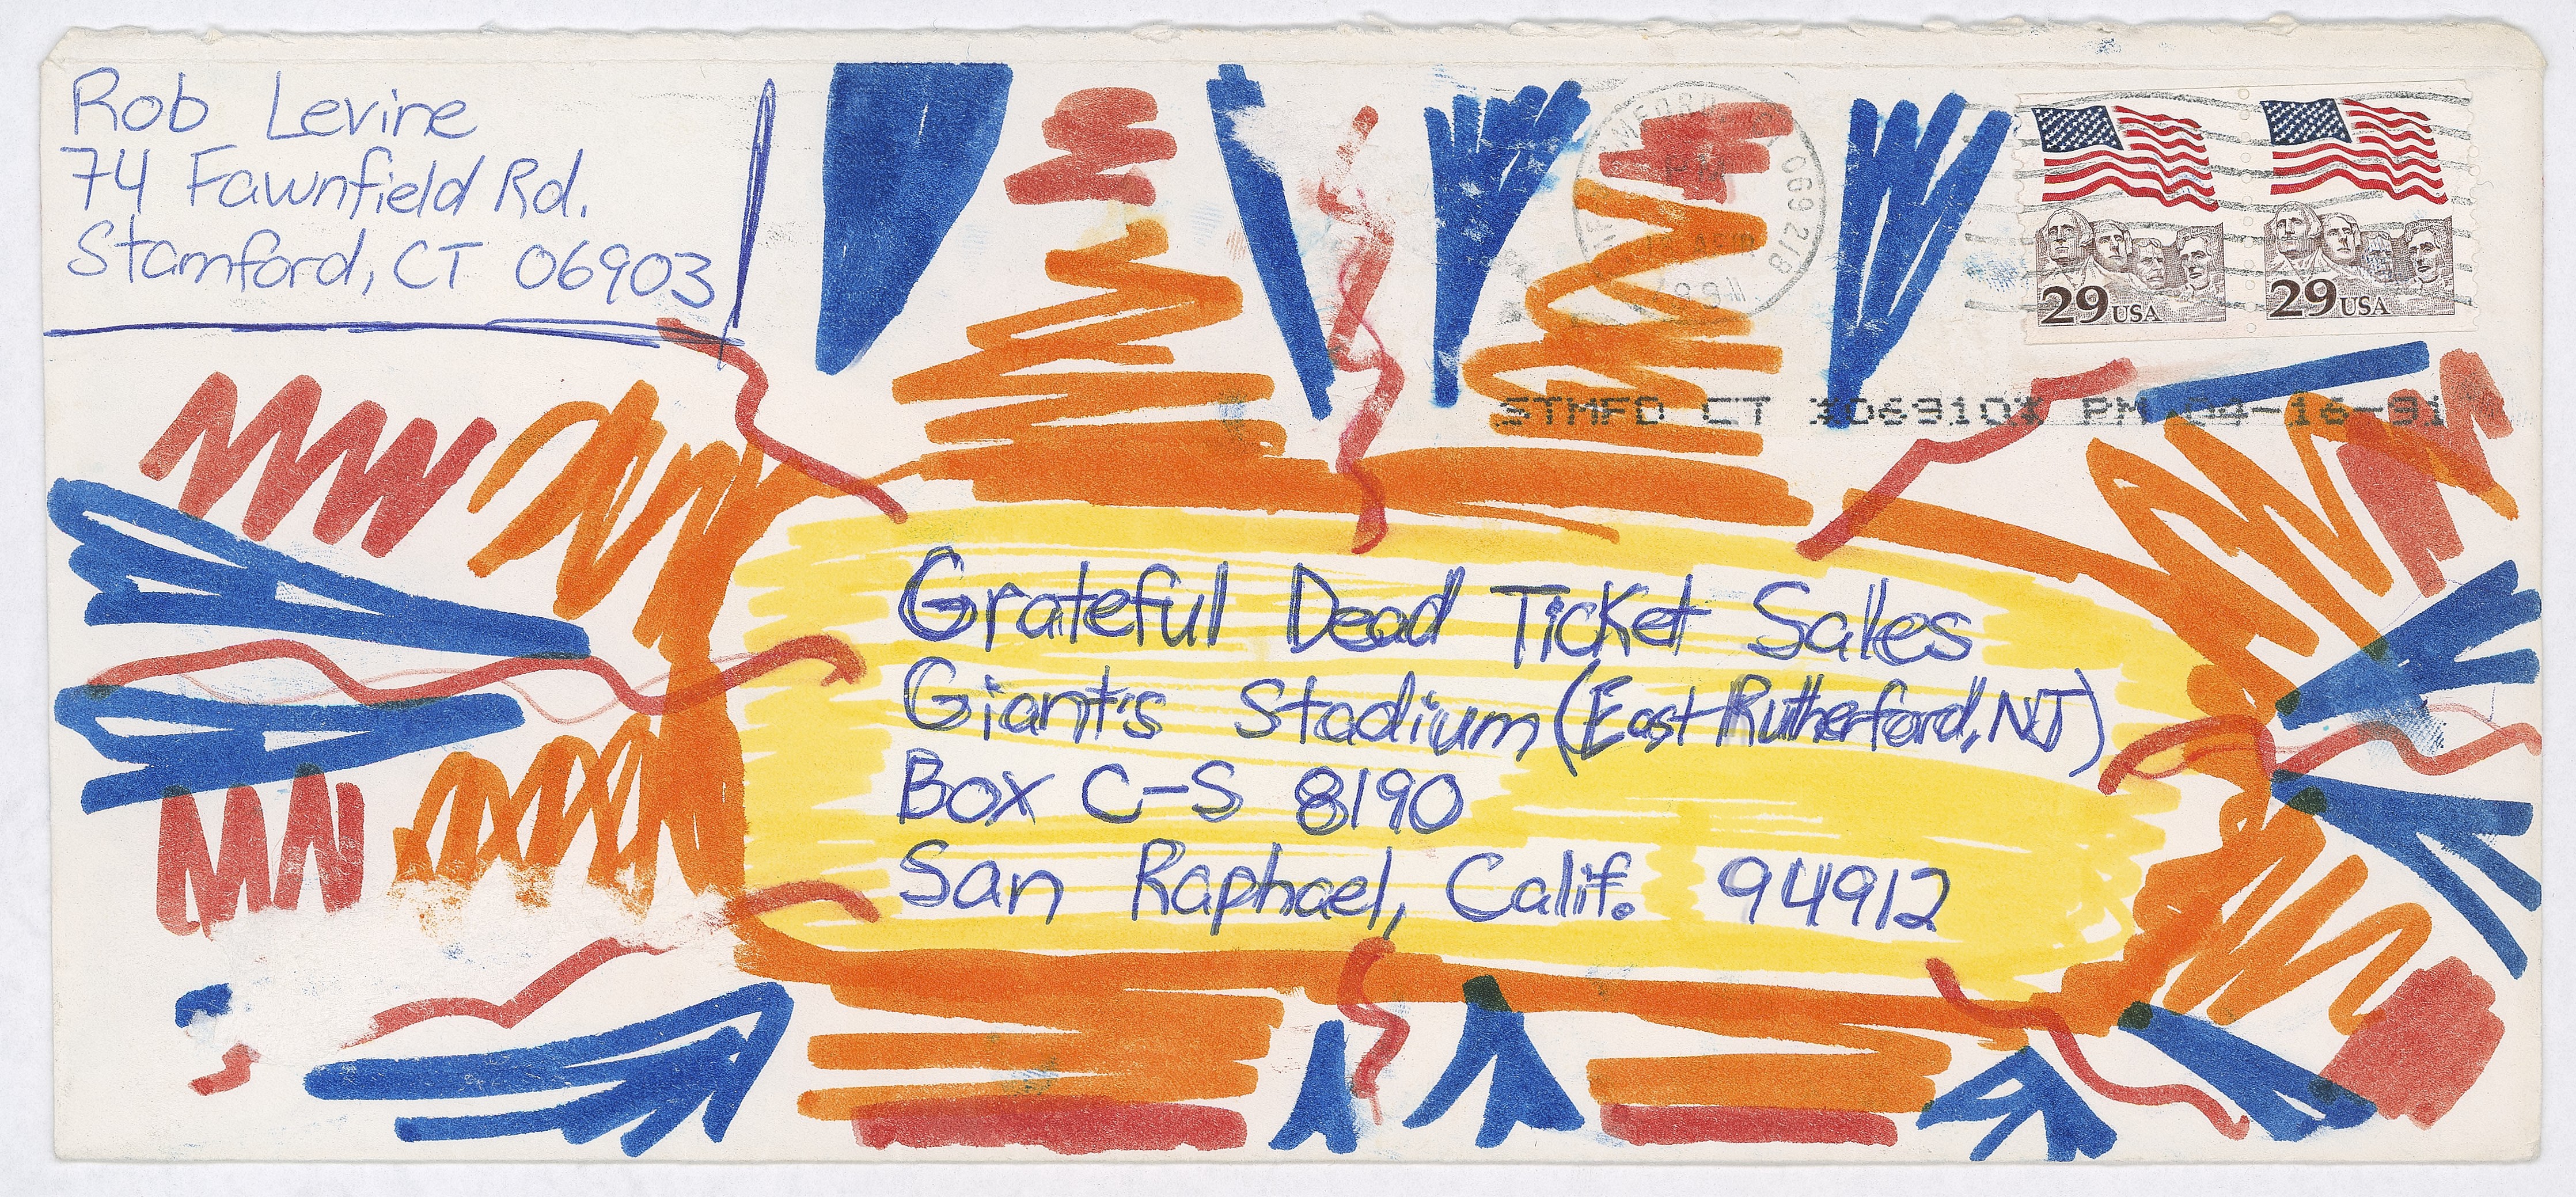 Rob Levine
74 Fawnfield Rd.
Stamford, CT 06903
29 USA
29 USA
PM
069218
STMFD CT *06910* PM 04-16-91
Grateful Dead Ticket Sales
Giant's Stadium (East Rutherford, NJ)
Box C-S 8190
San Raphael, Calif. 94912